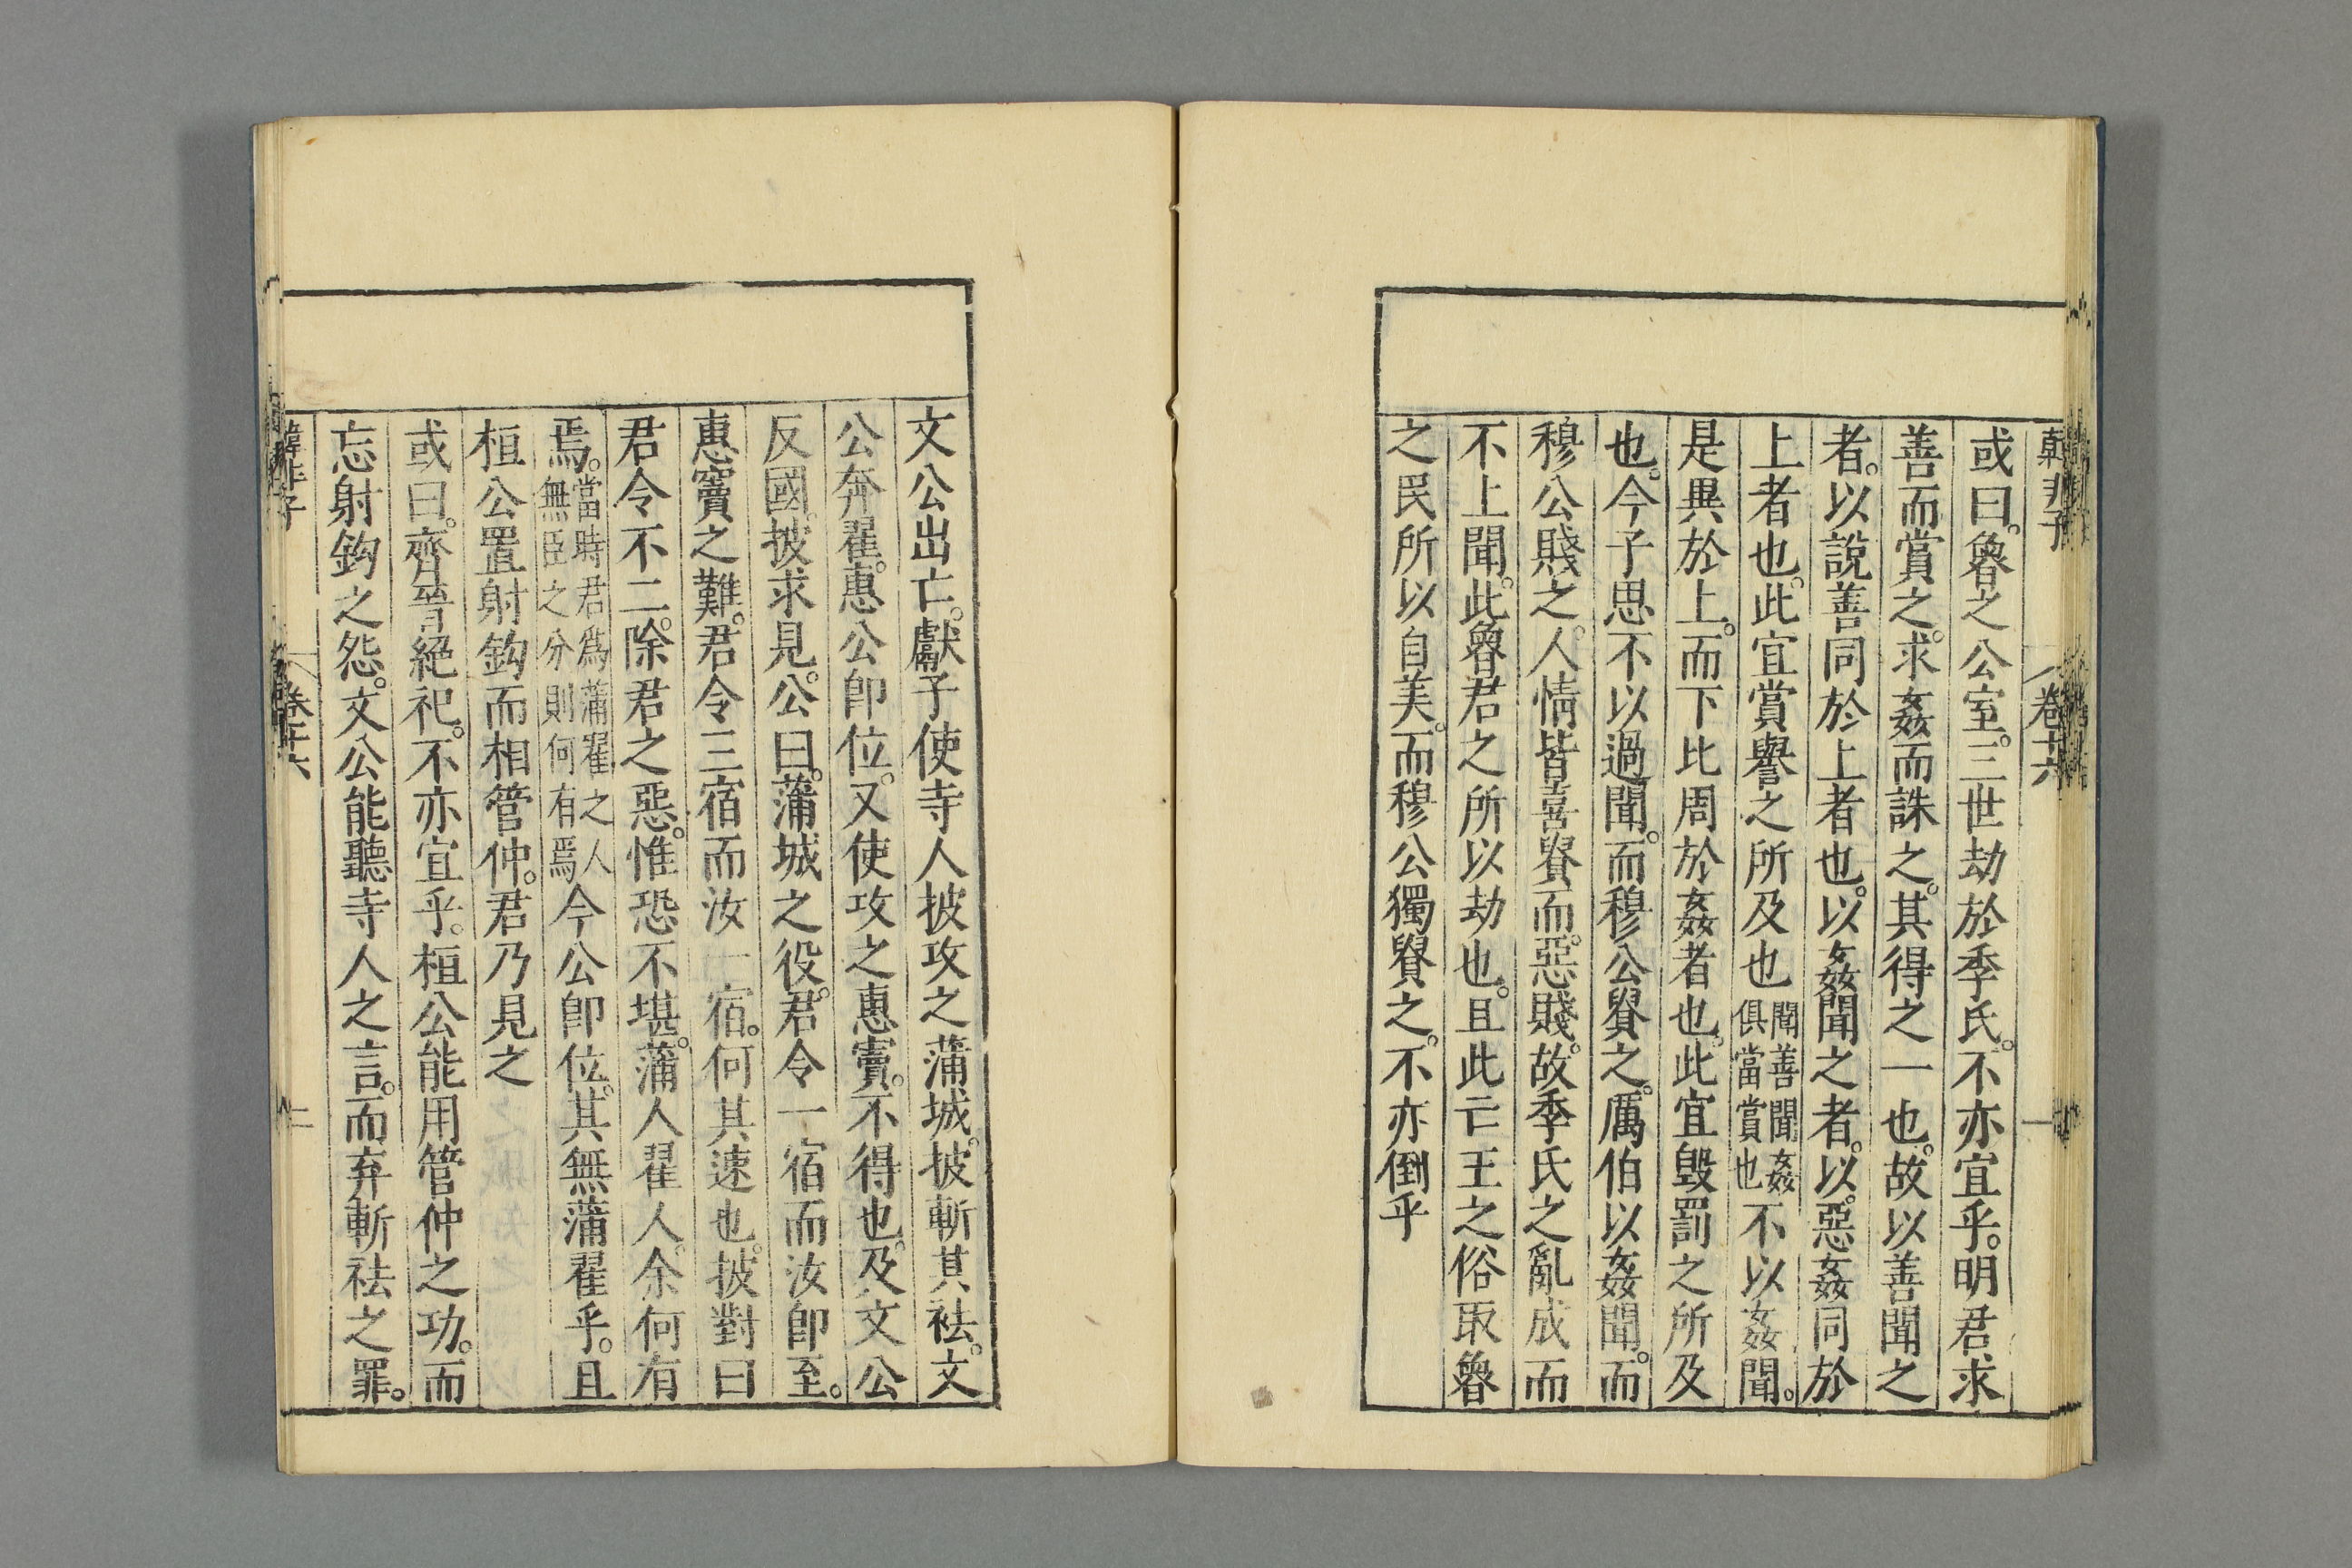 韓非子 卷十六 一
或曰。魯之公室。三世劫於季氏。不亦宜乎。明君求
善而賞之。求姦而誅之。其得之一也。故以善聞之
者。以說善同於上者也。以姦聞之者。以惡姦同於
上者也。此宜賞譽之所及也聞善聞姦俱當賞也不以姦聞。
是異於上。而下比周於姦者也。此宜毀罰之所及
也。今子思不以過聞。而穆公貴之。厲伯以姦聞。而
穆公賤之。人情皆喜貴而。惡賤。故季氏之亂成而
不上聞。此魯君之所以劫也。且此亡王之俗取魯
之民所以自美。而穆公獨貴之。不亦倒乎
文公出亡。獻子使寺人披攻之蒲城。披斬其袪。文
公奔翟。惠公卽位。又使攻之惠竇。不得也。及文公
反國。披求見。公曰。蒲城之役。君令一宿而汝卽至。
惠竇之難。君令三宿而汝一宿。何其速也。披對曰
君令不二。除君之惡。惟恐不堪。蒲人翟人。余何有
焉。當時君爲蒲翟之人無臣之分則何有焉今公卽位。其無蒲翟乎。且
桓公置射鈎而相管仲。君乃見之
或曰。齊晉絕祀。不亦宜乎。桓公能用管仲之功。而
忘射鈎之怨。文公能聽寺人之言。而弃斬袪之罪。
韓非子 卷十六 二